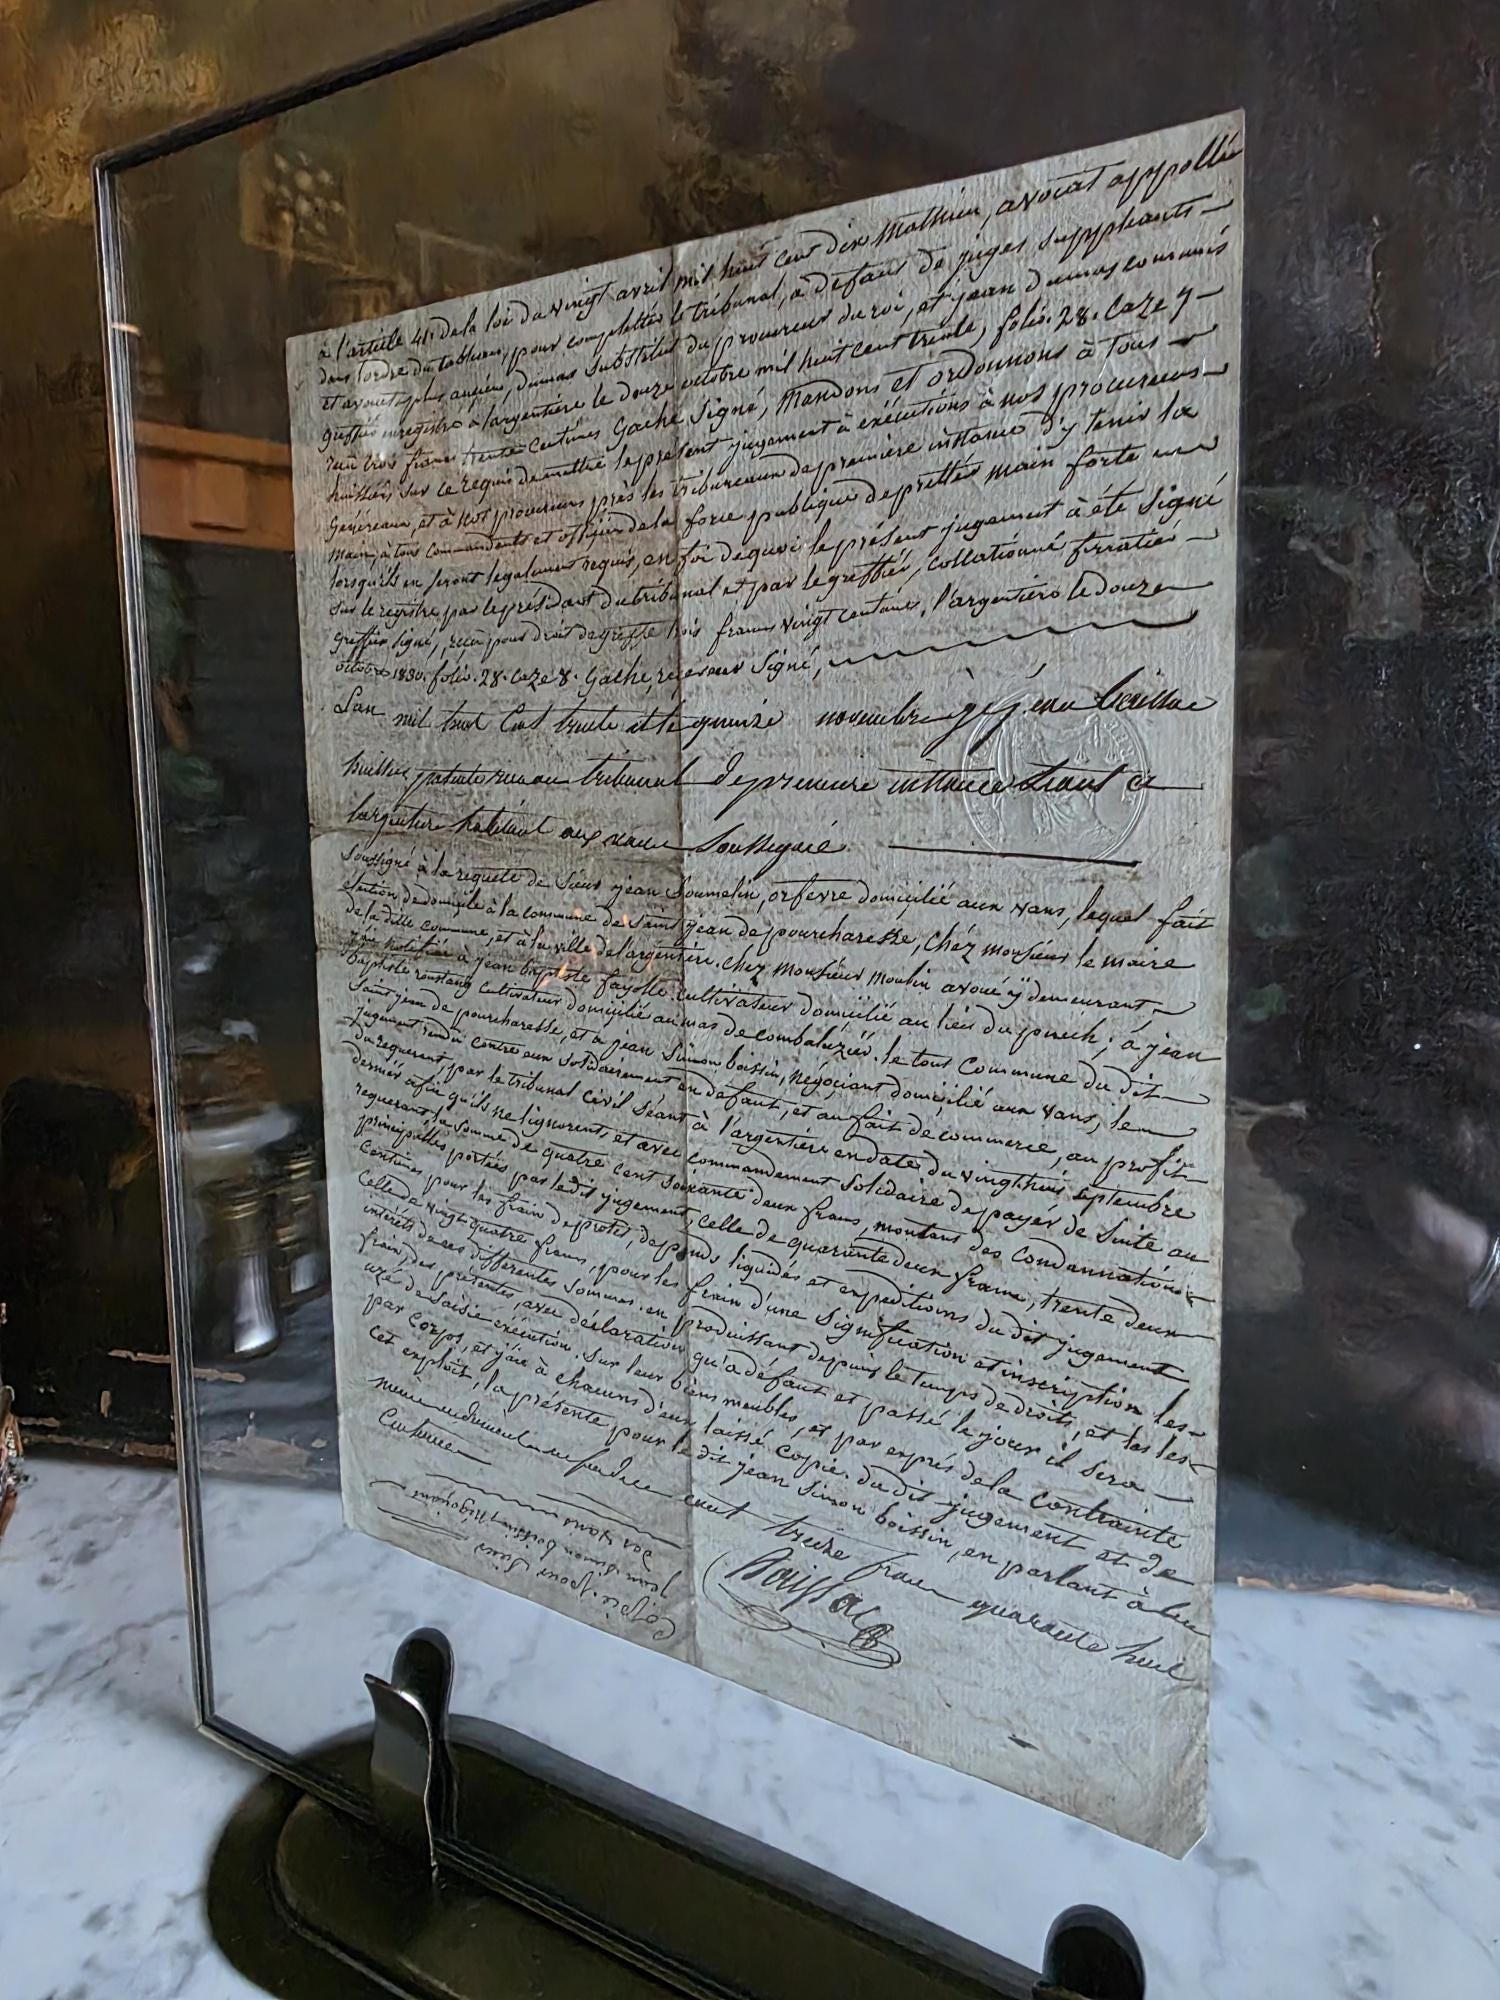 à l'article 41. de la loi du vingt avril mil huit cent dix Mathieu, avocat appellé
dans l'ordre du tableau, pour completter le tribunal, à défaut de juges suppléants
et avouets plus anciens, dumas substitut du procureur du roi, et jean dumas commis
greffier enregistré à largentière le douze octobre mil huit cent trente, folio. 28. caze 7
reçu trois francs trente centimes Gache Signé, Mandons et ordonnons à tous
huissiers sur ce requis de mettre le présent jugement à exécution, à nos procureurs
Généraux et à nos procureurs près les tribunaux de première instance d'y tenir la
main, à tous commandants et officiers de la force publique de prêtter main forte
lorsqu'ils en seront légalement requis, en foi de quoi le présent jugement à été signé
sur le registre par le président du tribunal et par le greffier, collationné
greffier signé, reçu pour droit de greffe trois francs vingt centimes, l'argentière le douze
octobre 1830. folio. 28. caze 8. Gache, receveur Signé,
L'an mil huit Cent trente et le quinze novembre je, jean
huissier patenté reçu au tribunal de première instance séant à
largentière habitant aux vans Soussigné
Soussigné à la requete de Sieur jean Soumelin, orfevre domicilié aux vans, lequel fait
élection de domicile à la commune de Saint jean de pourcharesse, chéz monsieur le maire
de la dite commune, et à la ville de l'argentière. chez monsieur moulin avoué y demeurant
j'ai notifié à jean baptiste fayolle cultivateur domicilié au lieu du puech; à jean
baptiste roustang cultivateur domicilié au mas de combaluzier. le tout commune du dit
Saint jean de pourcharesse, et à jean Simon boissin, négociant domicilié aux vans, le
jugement rendu contre eux solidairement en défaut, et au fait de commerce, au profit
du requerant, par le tribunal civil séant à l'argentière en date du vingt huit septembre
dernier afin qu'ils ne l'ignorent, et avec commandement solidaire de payer de suite au
requerant, la somme de quatre cent soixante deux francs, montant des condannations
principalles portées par le dit jugement, celle de quarante deux francs, trente deux
centimes pour les frais de protet, dépends liquidés et expeditions du dit jugement
celle de vingt quatre francs, pour les frais d'une signification et inscription, les
intérêts de ces differentes sommes. en produissant depuis le temps de droits, et tos les
frais, des présentes, avec déclaration qu'à défaut et passé le jour il sera
uzé de saisie exécution. sur leur biens meubles, et par exprés de la contrainte
par corps, et j'ai à chacuns d'eux laissé copie. du dit jugement et de
cet exploit, la présente pour le dit jean Simon boissin, en parlant à lui
même cent treize francs quarante huit
Centimes
Copie Pour Sieur
jean Simon boissin Négociant
aux Vans